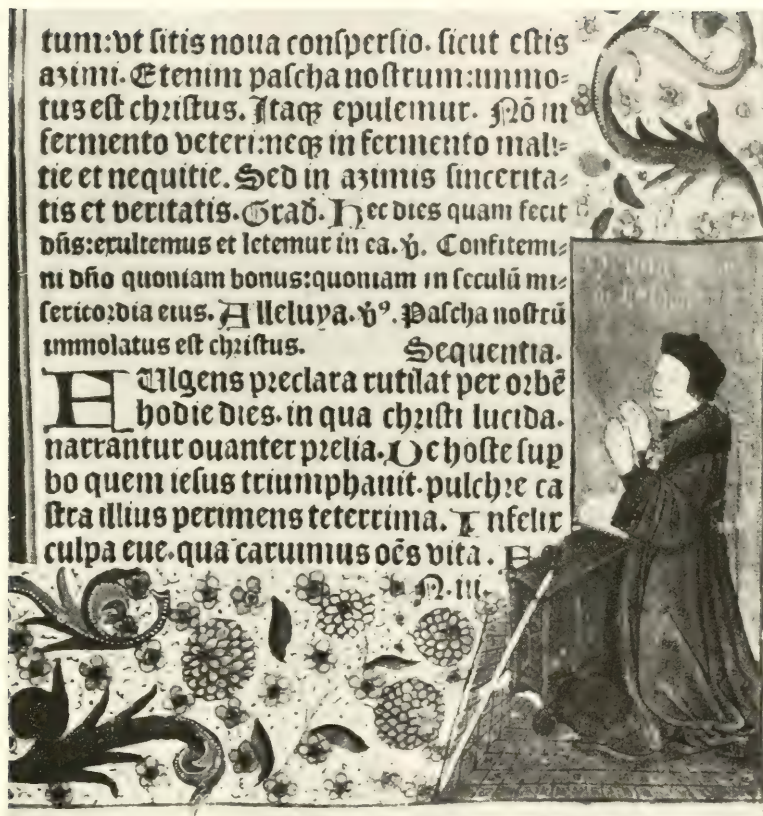 tum:vt sitis noua conspersio. sicut estis
azimi. Etenim pascha nostrum:immo⸗
tus est christus. Itaqꝫ epulemur. Nō in
fermento veteri:neqꝫ in fermento mali⸗
tie et nequitie. Sed in azimis sincerita⸗
tis et veritatis. Grad̄. Hec dies quam fecit
dn̄s:exultemus et letemur in ea. ℣. Confitemi⸗
ni dn̄o quoniam bonus:quoniam in seculū mi⸗
sericordia eius. Alleluya. ℣ꝰ. Pascha nostrū
immolatus est christus. Sequentia.
FUlgens preclara rutilat per orbē
hodie dies. in qua christi lucida.
narrantur ouanter prelia. De hoste suꝑ
bo quem iesus triumphauit. pulchre ca
stra illius perimens teterrima. Infelix
culpa eue. qua caruimus oēs vita.
N. iii.